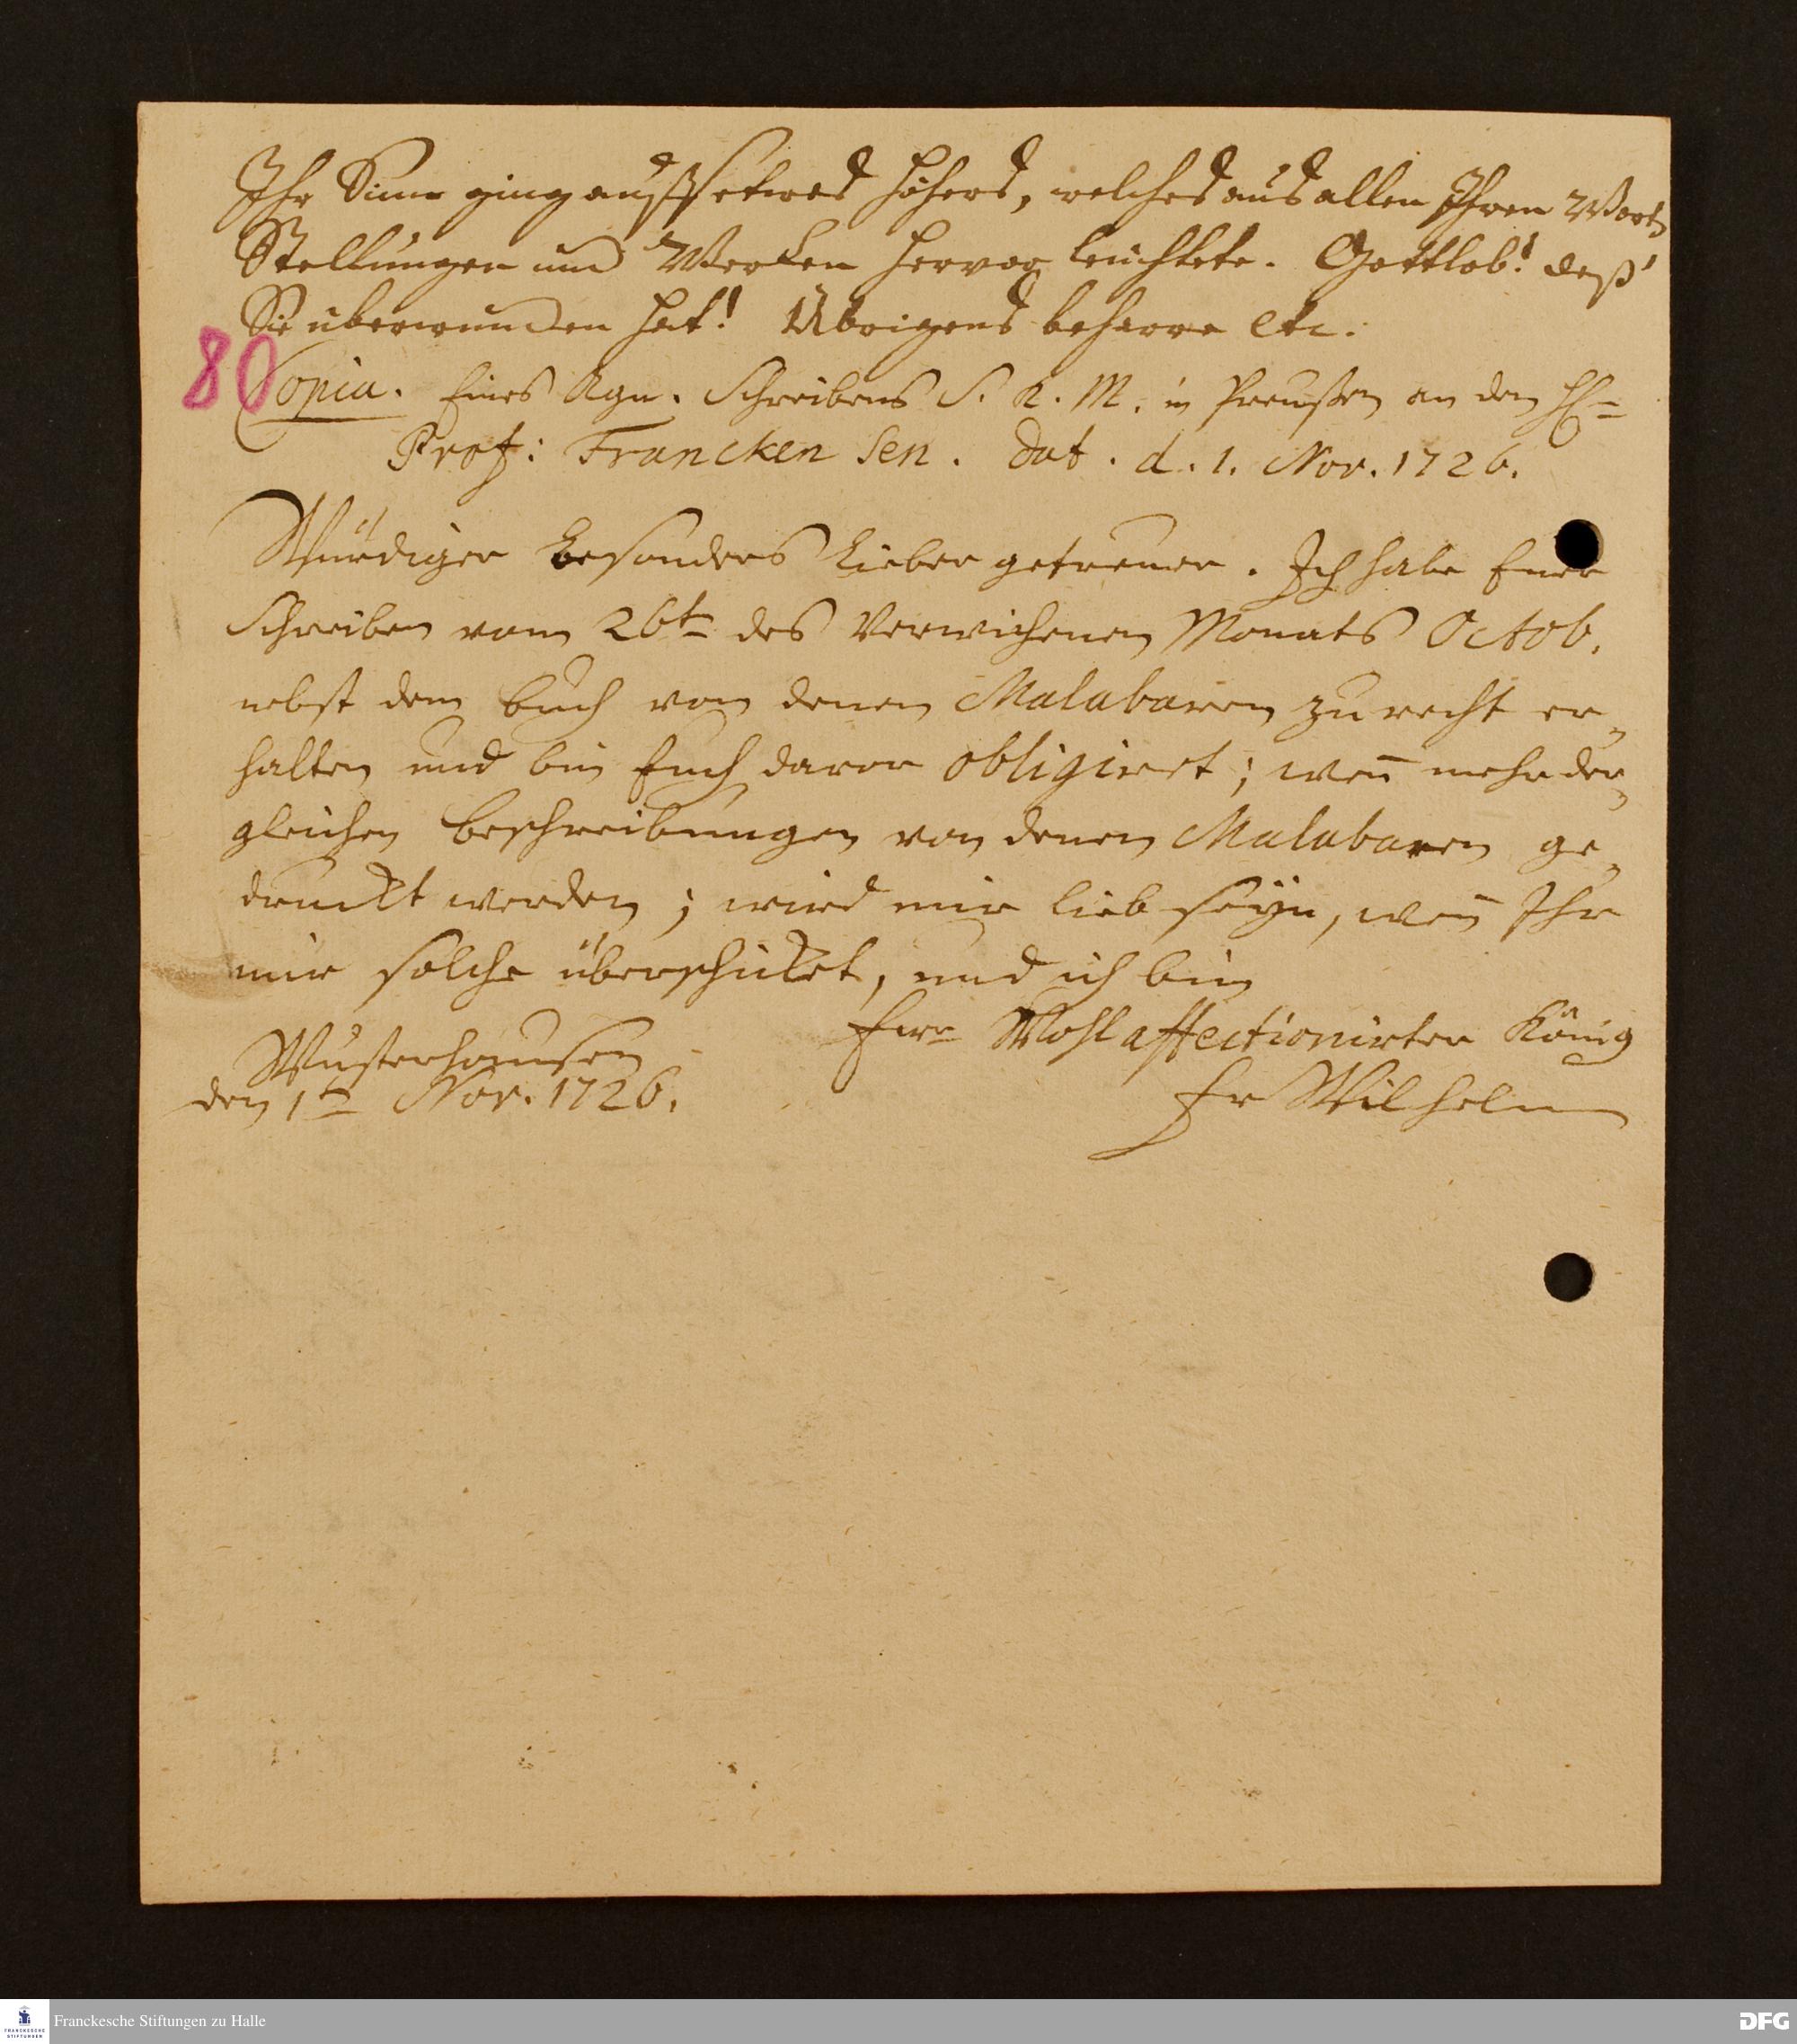 Ihr Sinn ging auff etwas höhers, welches aus allen Ihren Wort
Stellungen und Werken hervor leuchtete. Gottlob! daß
Sie überwunden hat! Übrigens beharre etc.
80
Copia. Eines Kgn. Schreibens S. K. M. in Preußen an den H
Prof: Francken Sen. Dat. d. 1. Nov. 1726.
Würdiger besonders lieber getreuer. Ich habe Euer
Schreiben vom 26t des Verwichenen Monats Octob.
nebst dem buch von denen Malabaren zu recht er-
halten und bin Euch davor obligiret; weñ mehr der-
gleichen beschreibungen von denen Malabaren ge-
druckt werden; wird mir lieb seyn, weñ Ihr
mir solche überschicket, und ich bin
Ewr Wohl affectionirter König
Wusterhausen
den 1t Nov. 1726.
Fr Wilhelm
Franckesche Stiftungen zu Halle
FRANCKESCHE STIFTUNGEN
DFG